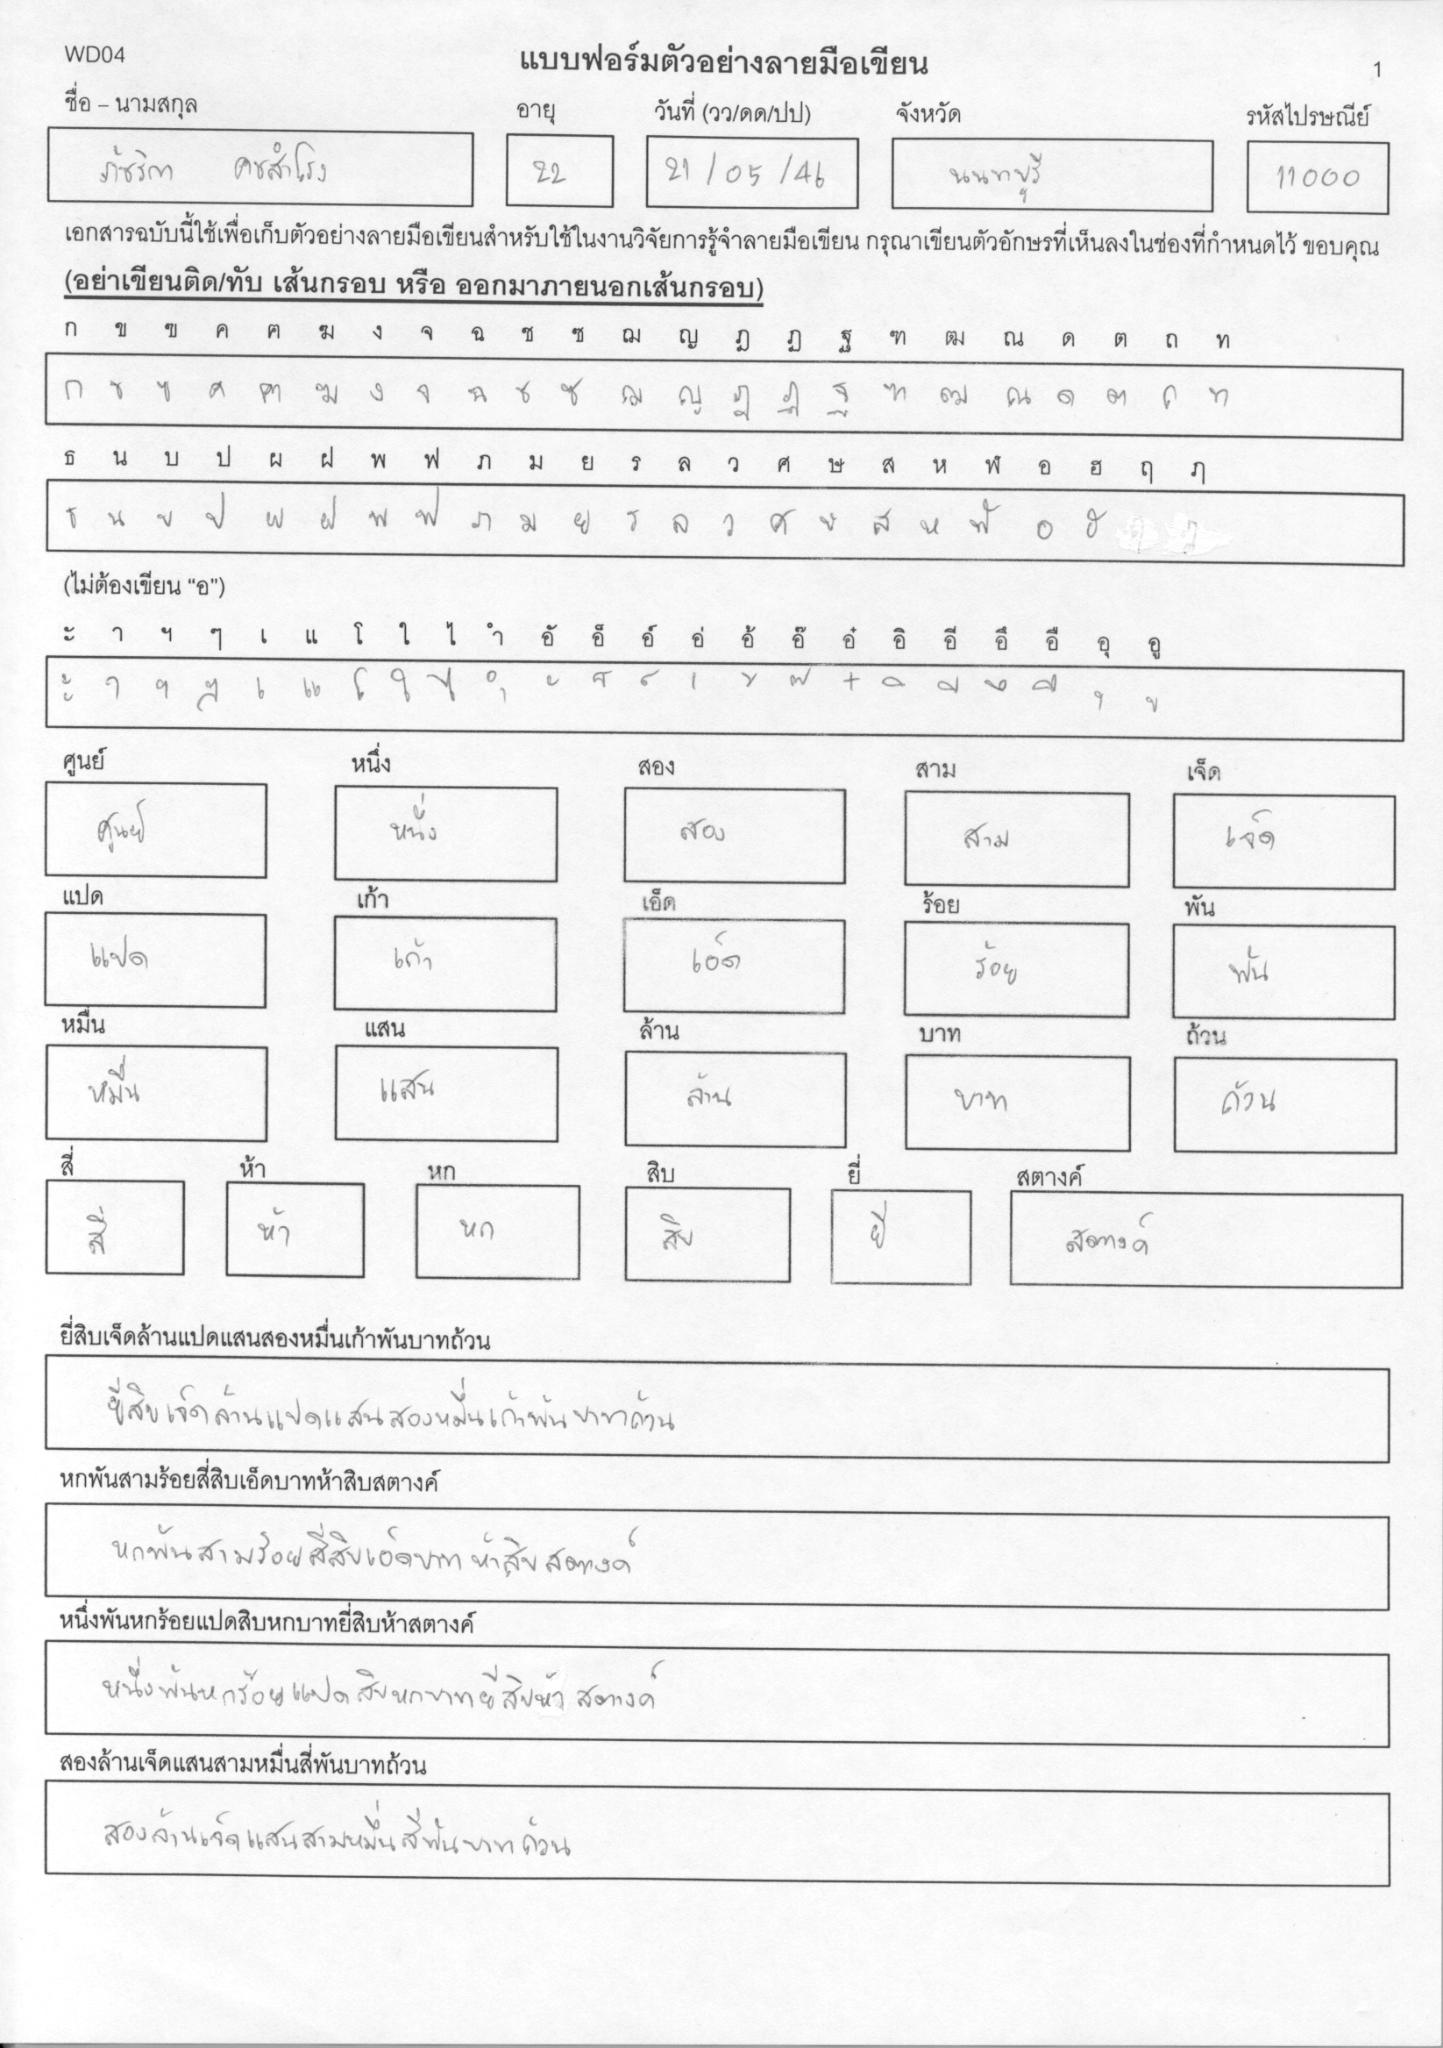 WD04
แบบฟอร์มตัวอย่างลายมือเขียน
1
ชื่อ – นามสกุล อายุ วันที่ (วว/ดด/ปป) จังหวัด รหัสไปรษณีย์
ภัชริกา คชสำโรง 22 21/05/46 นนทบุรี 11000
เอกสารฉบับนี้ใช้เพื่อเก็บตัวอย่างลายมือเขียนสำหรับใช้ในงานวิจัยการรู้จำลายมือเขียน กรุณาเขียนตัวอักษรที่เห็นลงในช่องที่กำหนดไว้ ขอบคุณ
(อย่าเขียนติด/ทับ เส้นกรอบ หรือ ออกมาภายนอกเส้นกรอบ)
ก ข ฃ ค ฅ ฆ ง จ ฉ ช ซ ฌ ญ ฎ ฏ ฐ ฑ ฒ ณ ด ต ถ ท
ก ข ฃ ค ฅ ฆ ง จ ฉ ช ซ ฌ ญ ฎ ฏ ฐ ฑ ฒ ณ ด ต ถ ท
ธ น บ ป ผ ฝ พ ฟ ภ ม ย ร ล ว ศ ษ ส ห ฬ อ ฮ ฤ ฦ
ธ น บ ป ผ ฝ พ ฟ ภ ม ย ร ล ว ศ ษ ส ห ฬ อ ฮ ฤ ฦ
(ไม่ต้องเขียน “อ”)
ะ า ฯ ๆ เ แ โ ใ ไ ำ อั อ็ อ์ อ่ อ้ อ๊ อ๋ อิ อี อึ อื อุ อู
ะ า ฯ ๆ เ แ โ ใ ไ ำ ั ็ ์ ่ ้ ๊ ๋ ิ ี ึ ื ุ ู
ศูนย์ หนึ่ง สอง สาม เจ็ด
ศูนย์ หนึ่ง สอง สาม เจ็ด
แปด เก้า เอ็ด ร้อย พัน
แปด เก้า เอ็ด ร้อย พัน
หมื่น แสน ล้าน บาท ถ้วน
หมื่น แสน ล้าน บาท ถ้วน
สี่ ห้า หก สิบ ยี่ สตางค์
สี่ ห้า หก สิบ ยี่ สตางค์
ยี่สิบเจ็ดล้านแปดแสนสองหมื่นเก้าพันบาทถ้วน
ยี่สิบเจ็ดล้านแปดแสนสองหมื่นเก้าพันบาทถ้วน
หกพันสามร้อยสี่สิบเอ็ดบาทห้าสิบสตางค์
หกพันสามร้อยสี่สิบเอ็ดบาทห้าสิบสตางค์
หนึ่งพันหกร้อยแปดสิบหกบาทยี่สิบห้าสตางค์
หนึ่งพันหกร้อยแปดสิบหกบาทยี่สิบห้าสตางค์
สองล้านเจ็ดแสนสามหมื่นสี่พันบาทถ้วน
สองล้านเจ็ดแสนสามหมื่นสี่พันบาทถ้วน